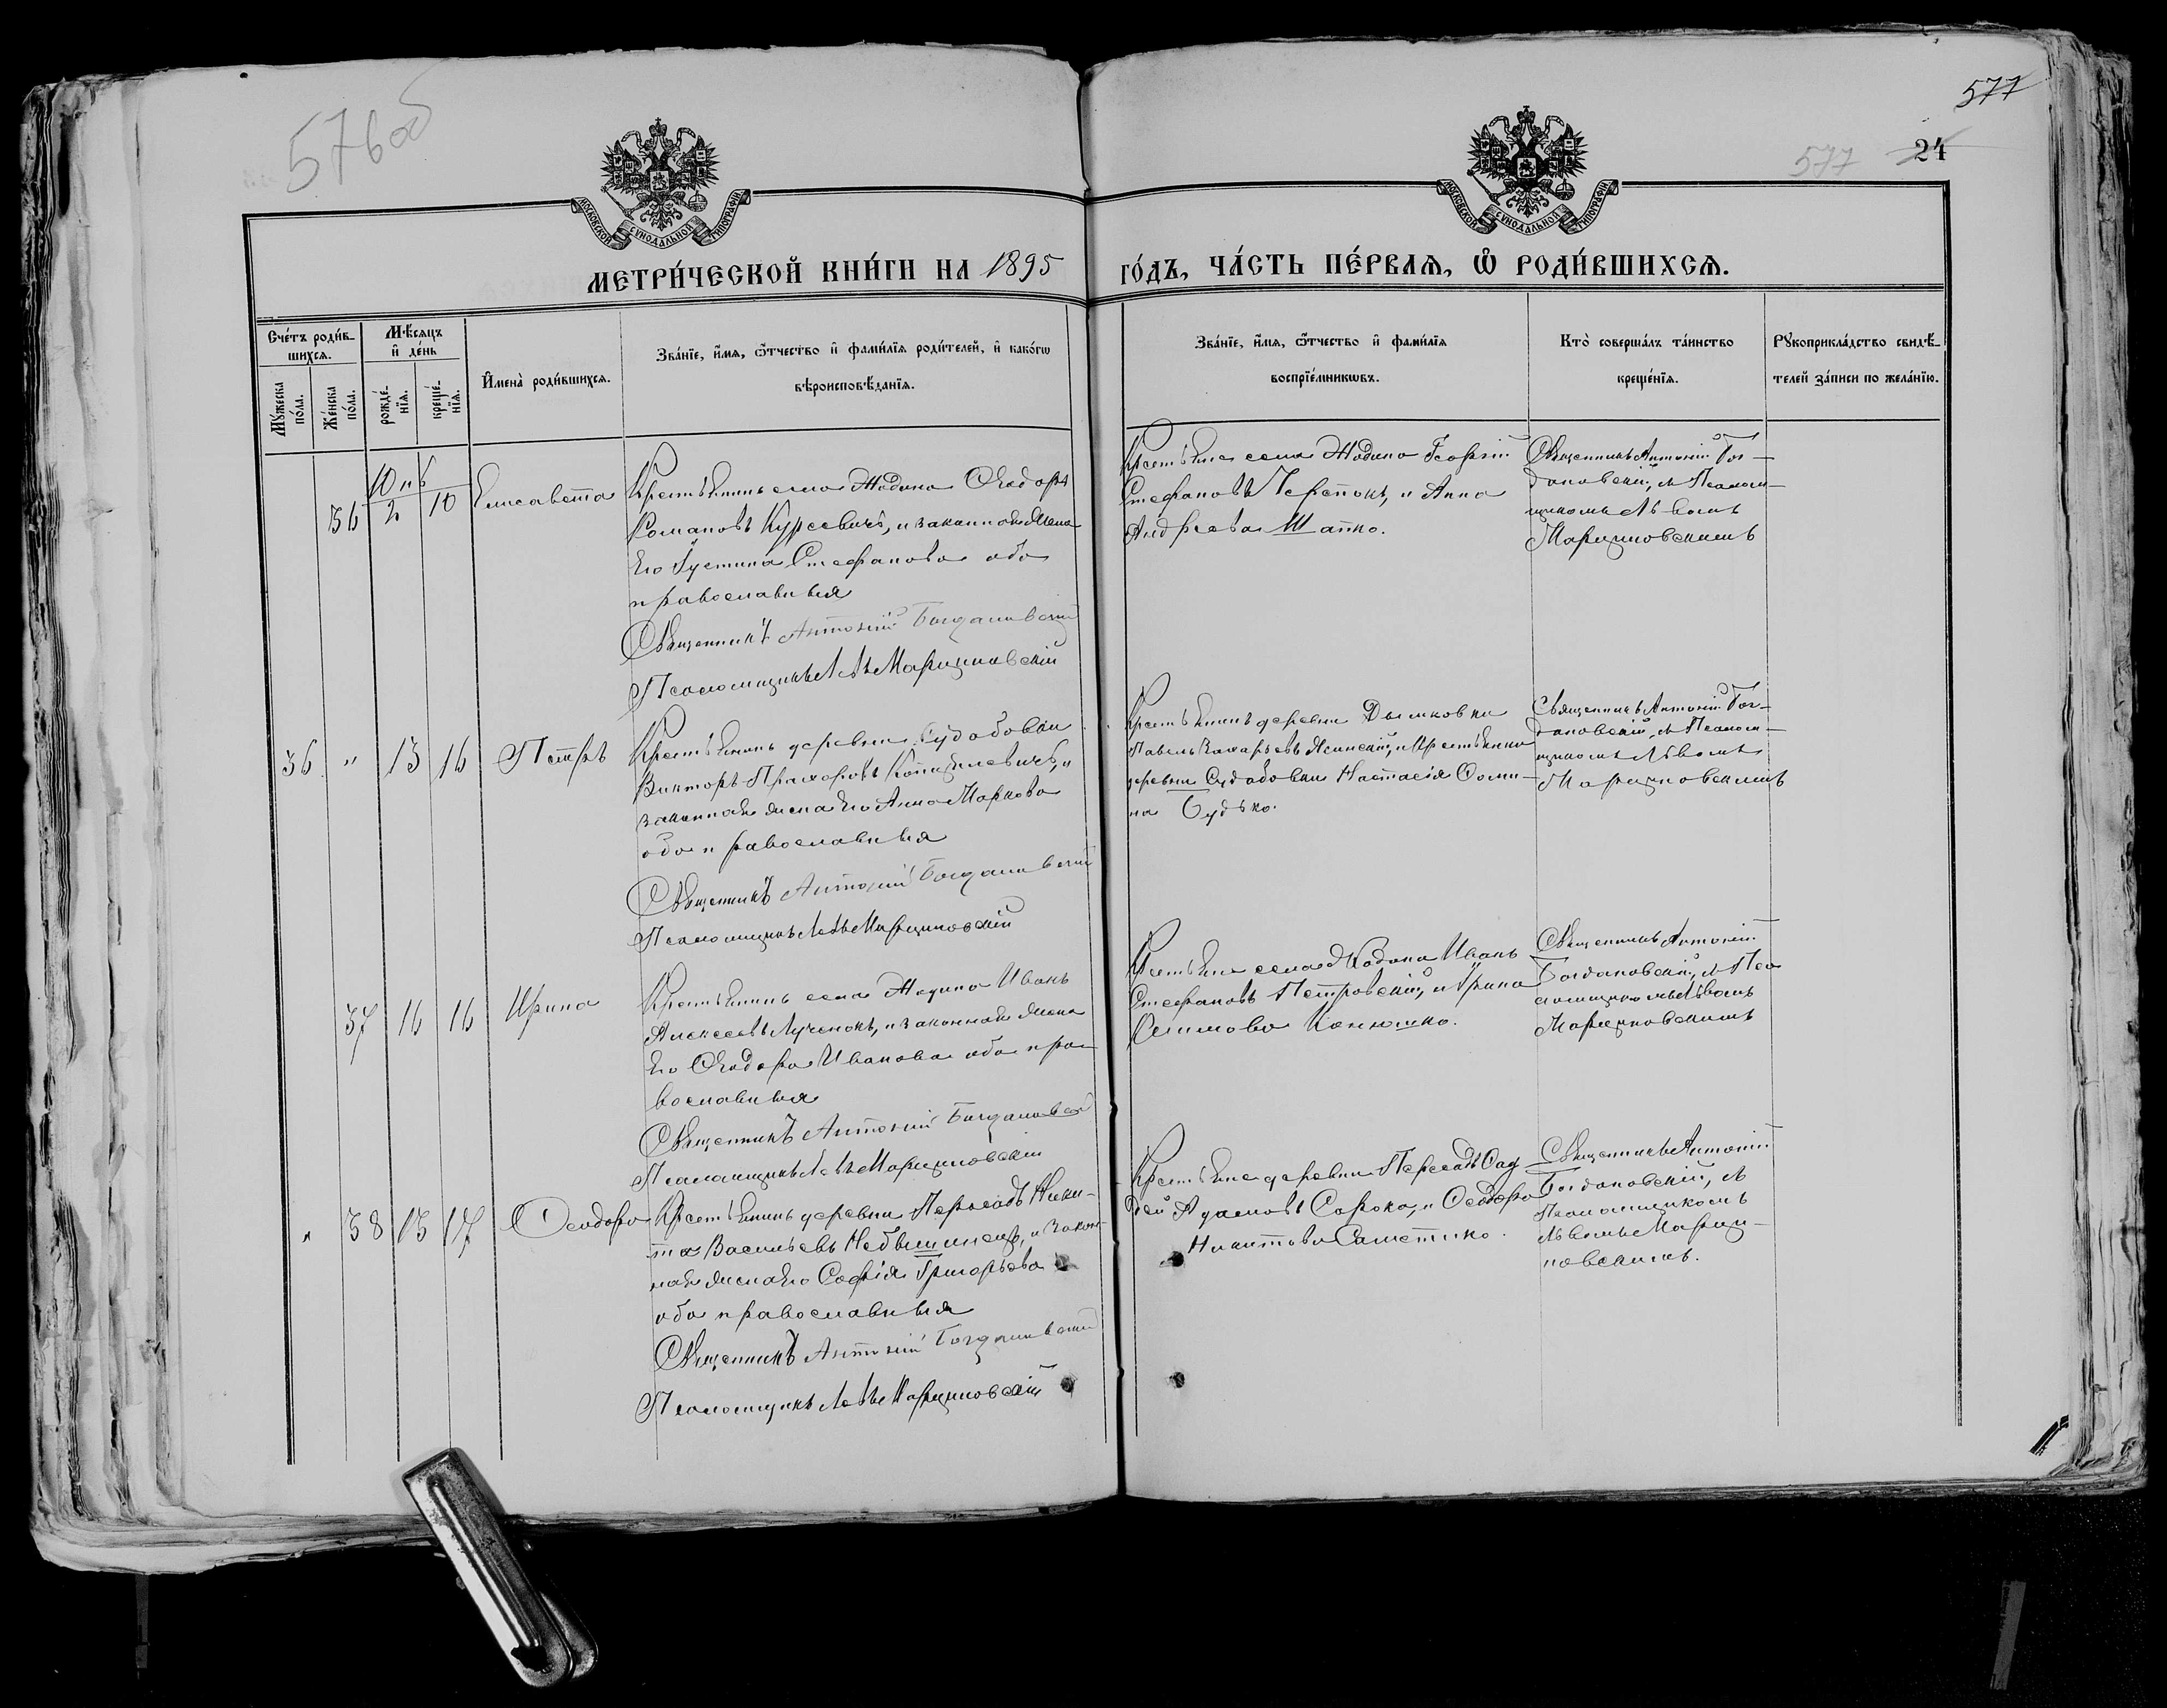 576 об
577
577 24
МОСКОВСКОЙ СѴНОДАЛЬНОЙ ТИПОГРАФІИ
МОСКОВСКОЙ СѴНОДАЛЬНОЙ ТИПОГРАФІИ
МЕТРИ́ЧЕСКОЙ КНИ́ГИ НА 1895
ГО́ДЪ, ЧА́СТЬ ПЕ́РВАЯ, Ѽ РОДИ́ВШИХСЯ.
Сче́тъ роди́в-
шихся.
Мѣ́сяцъ
и҆ де́нь
Му́жеска
по́ла.
Же́нска
по́ла.
рожде́-
нїя.
креще́-
нїя.
И҆мена̀ роди́вшихся.
Зва́нїе, и҆́мя, ѻ҆́тчество и҆ фами́лїя роди́телей, и҆ како́гѡ
вѣроисповѣ́данїя.
Зва́нїе, и҆́мя, ѻ҆́тчество и҆ фами́лїя
воспрїе́мникѡвъ.
Кто̀ соверша́лъ та́инство
креще́нїя.
Рукоприкла́дство свидѣ́-
телей за́писи по жела́нїю.
36
Юнь
2 10
Елисавета
Крестьянинъ села Жодина Ѳеодоръ
Романовъ Курсевичъ, и законная жена
Его Іустина Стефанова оба
православныя
Священникъ Антоній Богдановскій
Псаломщикъ Левъ Марциновскій
Крестьяне села Жодина Георгій
Стефановъ и Анна
Андреева Шапко.
Священникъ Антоній Бог-
дановскій, съ Псалом-
щикомъ Львомъ
Марциновскимъ
36 " 13 16 Петръ
Крестьянинъ деревни Судобовки
Викторъ Прохоровъ и
законная жена Его Анна Маркова
оба православныя
Священникъ Антоній Богдановскій
Псаломщикъ Левъ Марциновскій
Крестьянинъ деревни Дымковки
Павелъ Захарьевъ Ясинскій, и Крестьянка
деревни Судобовки Настасія Соми-
на Будько.
Священникъ Антоній Бог-
дановскій, съ Псалом-
щикомъ Львомъ
Марциновскимъ
37 16 16 Ирина
Крестьянинъ села Жодина Иванъ
Алексеевъ Лученокъ, и законная жена
Его Ѳеодора Иванова оба пра-
вославныя
Священникъ Антоній Богдановскій
Псаломщикъ Левъ Марциновскій
Крестьяне села Жодина Иванъ
Стефановъ Петровскій, и Ирина
Конюшко.
Священникъ Антоній
Богдановскій, съ Пса
ломщикомъ Львомъ
Марциновскимъ
" 38 15 17 Ѳеодора
Крестьянинъ деревни Пересадъ Ники-
та Васильевъ и закон-
ная жена Его Софія Григорьева
оба православныя
Священникъ Антоній Богдановскій
Псаломщикъ Левъ Марциновскій
Крестьяне деревни Пересадъ Фад
дей Адамовъ Сорока, и Ѳеодора
Никитова
Священникъ Антоній
Богдановскій, съ
Псаломщикомъ
Львомъ Марци-
новскимъ.